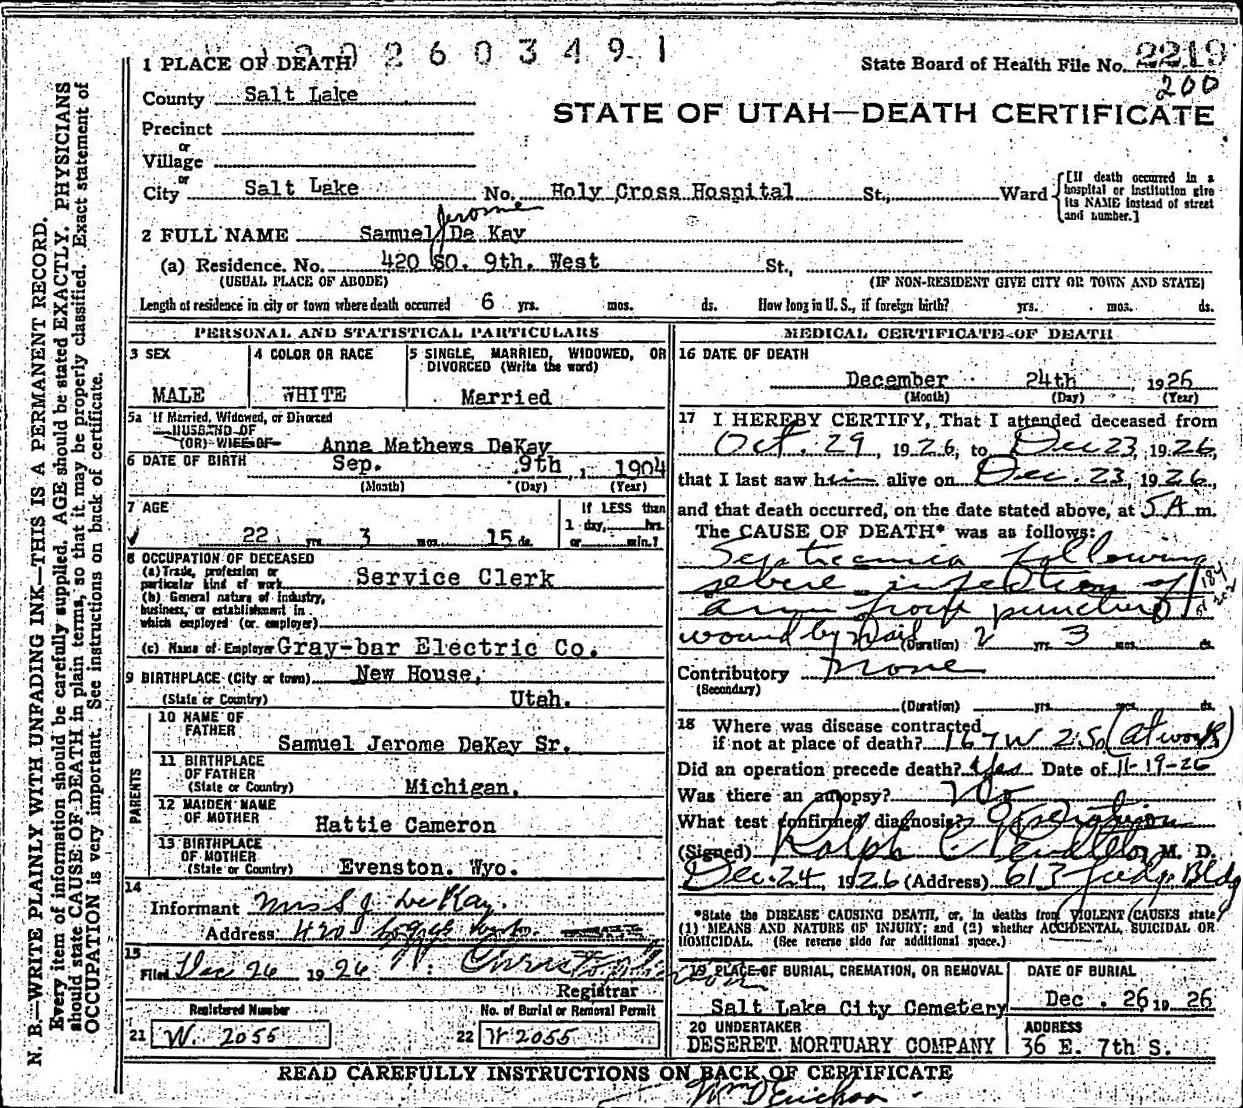 2 6 0 3 4 9 1
1 PLACE OF DEATH
State Board of Health File No. 2219
200
County Salt Lake
STATE OF UTAH—DEATH CERTIFICATE
Precinct
or
Village
or
City Salt Lake No. Holy Cross Hospital St., Ward
[If death occurred in a hospital or institution give its NAME instead of street and number.]
Jerome
2 FULL NAME Samuel De Kay
(a) Residence. No. 420 SO. 9th. West St.,
(USUAL PLACE OF ABODE) (IF NON-RESIDENT GIVE CITY OR TOWN AND STATE)
Length of residence in city or town where death occurred 6 yrs. mos. ds. How long in U. S., if foreign birth? yrs. mos. ds.
PERSONAL AND STATISTICAL PARTICULARS
3 SEX
MALE
4 COLOR OR RACE
WHITE
5 SINGLE, MARRIED, WIDOWED, OR DIVORCED (Write the word)
Married
5a If Married, Widowed, or Divorced
HUSBAND OF
(OR) WIFE OF Anna Mathews DeKay
6 DATE OF BIRTH Sep. 9th, 1904
(Month) (Day) (Year)
7 AGE
22 yrs. 3 mos. 15 ds.
If LESS than
1 day, hrs.
or min.?
8 OCCUPATION OF DECEASED
(a) Trade, profession or
particular kind of work Service Clerk
(b) General nature of industry,
business, or establishment in
which employed (or employer)
(c) Name of Employer Gray-bar Electric Co.
9 BIRTHPLACE (City or town) New House,
(State or Country) Utah.
PARENTS
10 NAME OF
FATHER
Samuel Jerome DeKay Sr.
11 BIRTHPLACE
OF FATHER
(State or Country) Michigan.
12 MAIDEN NAME
OF MOTHER
Hattie Cameron
13 BIRTHPLACE
OF MOTHER
(State or Country) Evenston. Wyo.
14
Informant Mrs S J DeKay.
Address 420
15
Filed Dec 26 1926
Registrar
Registered Number
21 W. 2055
No. of Burial or Removal Permit
22 W 2055
MEDICAL CERTIFICATE OF DEATH
16 DATE OF DEATH
December 24th 1926
(Month) (Day) (Year)
17 I HEREBY CERTIFY, That I attended deceased from
Oct. 29, 1926, to Dec 23, 1926,
that I last saw him alive on Dec. 23, 1926,
and that death occurred, on the date stated above, at 5 A m.
The CAUSE OF DEATH* was as follows:
Septicemia following
severe infection of
arm from punctured
wound by Nail (Duration) 2 yrs. 3 mos. ds.
Contributory None
(Secondary)
(Duration) yrs. mos. ds.
18 Where was disease contracted
if not at place of death? 167 W 2 So (at work)
Did an operation precede death? Yes Date of 11-19-26
Was there an autopsy? No
What test confirmed diagnosis? Operation
(Signed) Ralph C Pendleton M. D.
Dec. 24, 1926 (Address) 613 Judge Bldg
*State the DISEASE CAUSING DEATH, or, in deaths from VIOLENT CAUSES state
(1) MEANS AND NATURE OF INJURY; and (2) whether ACCIDENTAL, SUICIDAL OR
HOMICIDAL. (See reverse side for additional space.)
19 PLACE OF BURIAL, CREMATION, OR REMOVAL
Salt Lake City Cemetery
DATE OF BURIAL
Dec. 26, 1926
20 UNDERTAKER
DESERET MORTUARY COMPANY
ADDRESS
36 E. 7th S.
READ CAREFULLY INSTRUCTIONS ON BACK OF CERTIFICATE
N. B.—WRITE PLAINLY WITH UNFADING INK—THIS IS A PERMANENT RECORD.
Every item of information should be carefully supplied. AGE should be stated EXACTLY. PHYSICIANS
should state CAUSE OF DEATH in plain terms, so that it may be properly classified. Exact statement of
OCCUPATION is very important. See instructions on back of certificate.